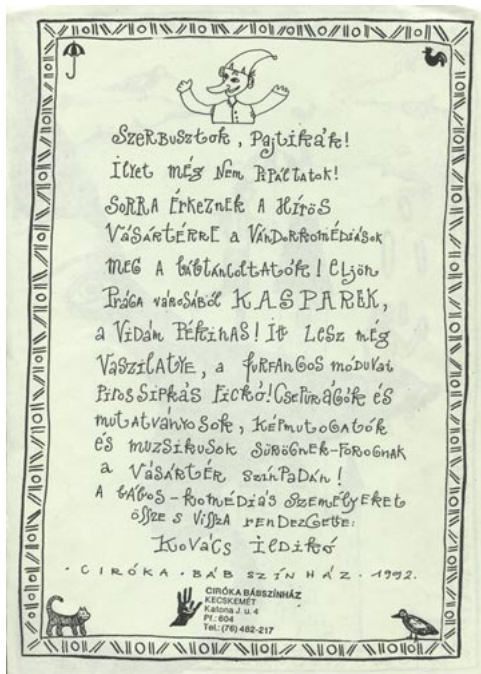 Szerbusztok, Pajtikák!
Ilyet még Nem Pipáltatok!
SORRA ÉRKEZNEK A HÍRÖS
VÁSÁRTÉRRE a VÁNDORKOMÉDIÁSOK
MEG A bábtáncoltatók! Eljön
Prága városából KASPAREK,
a VIDÁM PÉKINAS! Itt LESZ még
VASZILATYE, a furfangos móduvai
PIROSSIPKÁS FICKÓ! CSEPŰRÁGÓK ÉS
mutatványosok, KÉPmutogatók
és muzsikusok SÜRÖGNEK-FOROGNAK
a VÁSÁRTÉR színpadán!
A bábos-komédiás személyeket
össze s vissza rendezgette:
Kovács Ildikó
· CIRÓKA · BÁBSZÍNHÁZ · 1992.
CIRÓKA BÁBSZÍNHÁZ
KECSKEMÉT
Katona J. u. 4
Pf.: 604
Tel.: (76) 482-217